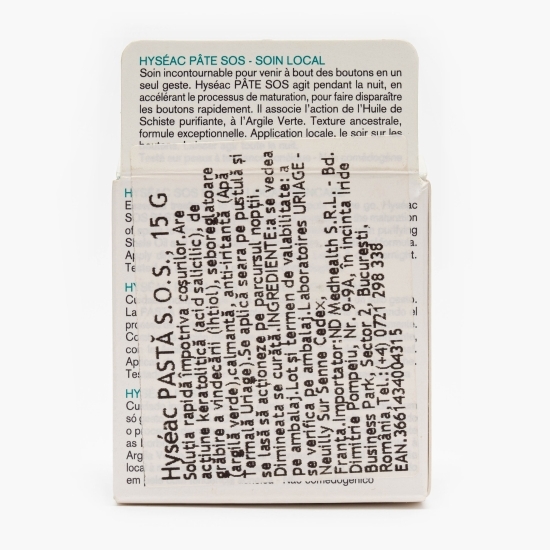 HYSÉAC PÂTE SOS - SOIN LOCAL
Soin incontournable pour venir à bout des boutons en un
seul geste. Hyséac PÂTE SOS agit pendant la nuit, en
accélérant le processus de maturation, pour faire disparaître
les boutons rapidement. Il associe l'action de l'Huile de
Schiste purifiante, à l'Argile Verte. Texture ancestrale,
formule exceptionnelle. Application locale. le soir sur les
Hyséac PASTĂ S.O.S., 15 G
Soluția rapidă împotriva coșurilor.Are
acțiune keratolitică (acid salicilic), de
grăbire a vindecării (Ihtiol), seboreglatoare
(argilă verde),calmantă, anti-iritantă (Apă
Termală Uriage).Se aplică seara pe pustulă și
se lasă să acționeze pe parcursul nopții.
Dimineata se curăță.INGREDIENTE:a se vedea
pe ambalaj.Lot și termen de valabilitate: a
se verifica pe ambalaj.Laboratoires URIAGE -
Neuilly Sur Senne Cedex,
Franța. Importator:ND Medhealth S.R.L. - Bd.
Dimitrie Pompeiu, Nr. 9-9A, în incinta Iride
Business Park, Sector 2, București,
România, Tel.:(+4) 0721 298 338
EAN 3661434004315